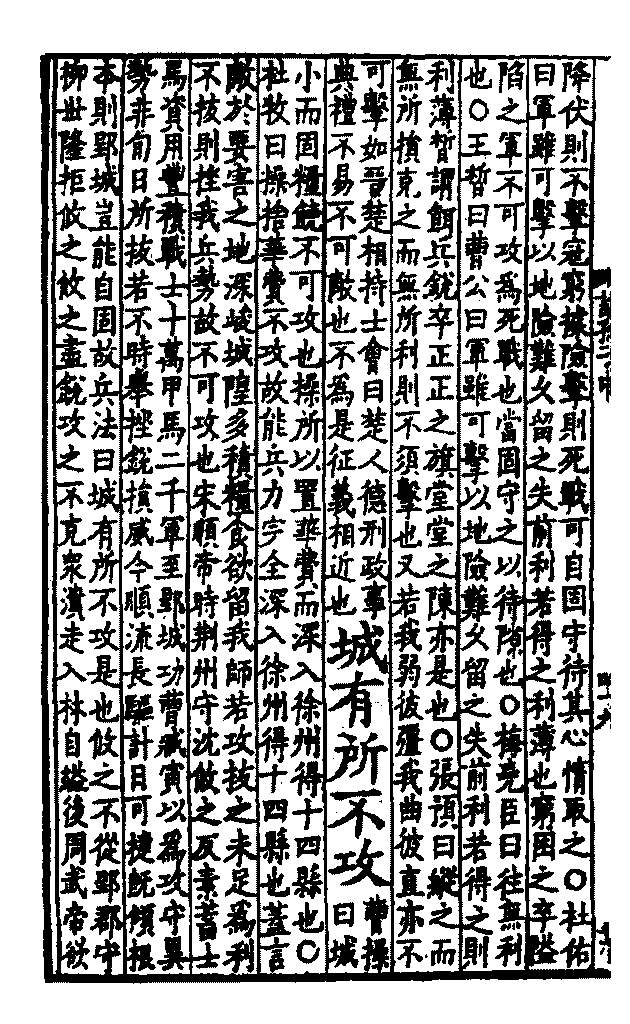 降伏則不擊寇窮據險擊則死戰可自固守待其心惰取之○杜佑
曰軍雖可擊以地險難久留之失前利若得之利薄也窮困之卒隘
陷之軍不可攻為死戰也當固守之以待隙也○梅堯臣曰往無利
也○王晳曰曹公曰軍雖可擊以地險難久留之失前利若得之則
利薄晳謂餌兵銳卒正正之旗堂堂之陳亦是也○張預曰縱之而
無所損克之而無所利則不須擊也又若我弱彼彊我曲彼直亦不
可擊如晉楚相持士會曰楚人德刑政事
典禮不易不可敵也不為是征義相近也
城有所不攻
曹操
曰城
小而固糧饒不可攻也操所以置華費而深入徐州得十四縣也○
杜牧曰操捨華費不攻故能兵力完全深入徐州得十四縣也蓋言
敵於要害之地深峻城隍多積糧食欲留我師若攻拔之未足為利
不拔則挫我兵勢故不可攻也宋順帝時荊州守沈攸之反素蓄士
馬資用豐積戰士十萬甲馬二千軍至郢城功曹臧寅以為攻守異
勢非旬日所拔若不時舉挫銳損威今順流長驅計日可捷既傾根
本則郢城豈能自固故兵法曰城有所不攻是也攸之不從郢郡守
柳世隆拒攸之攸之盡銳攻之不克眾潰走入林自縊後周武帝欲